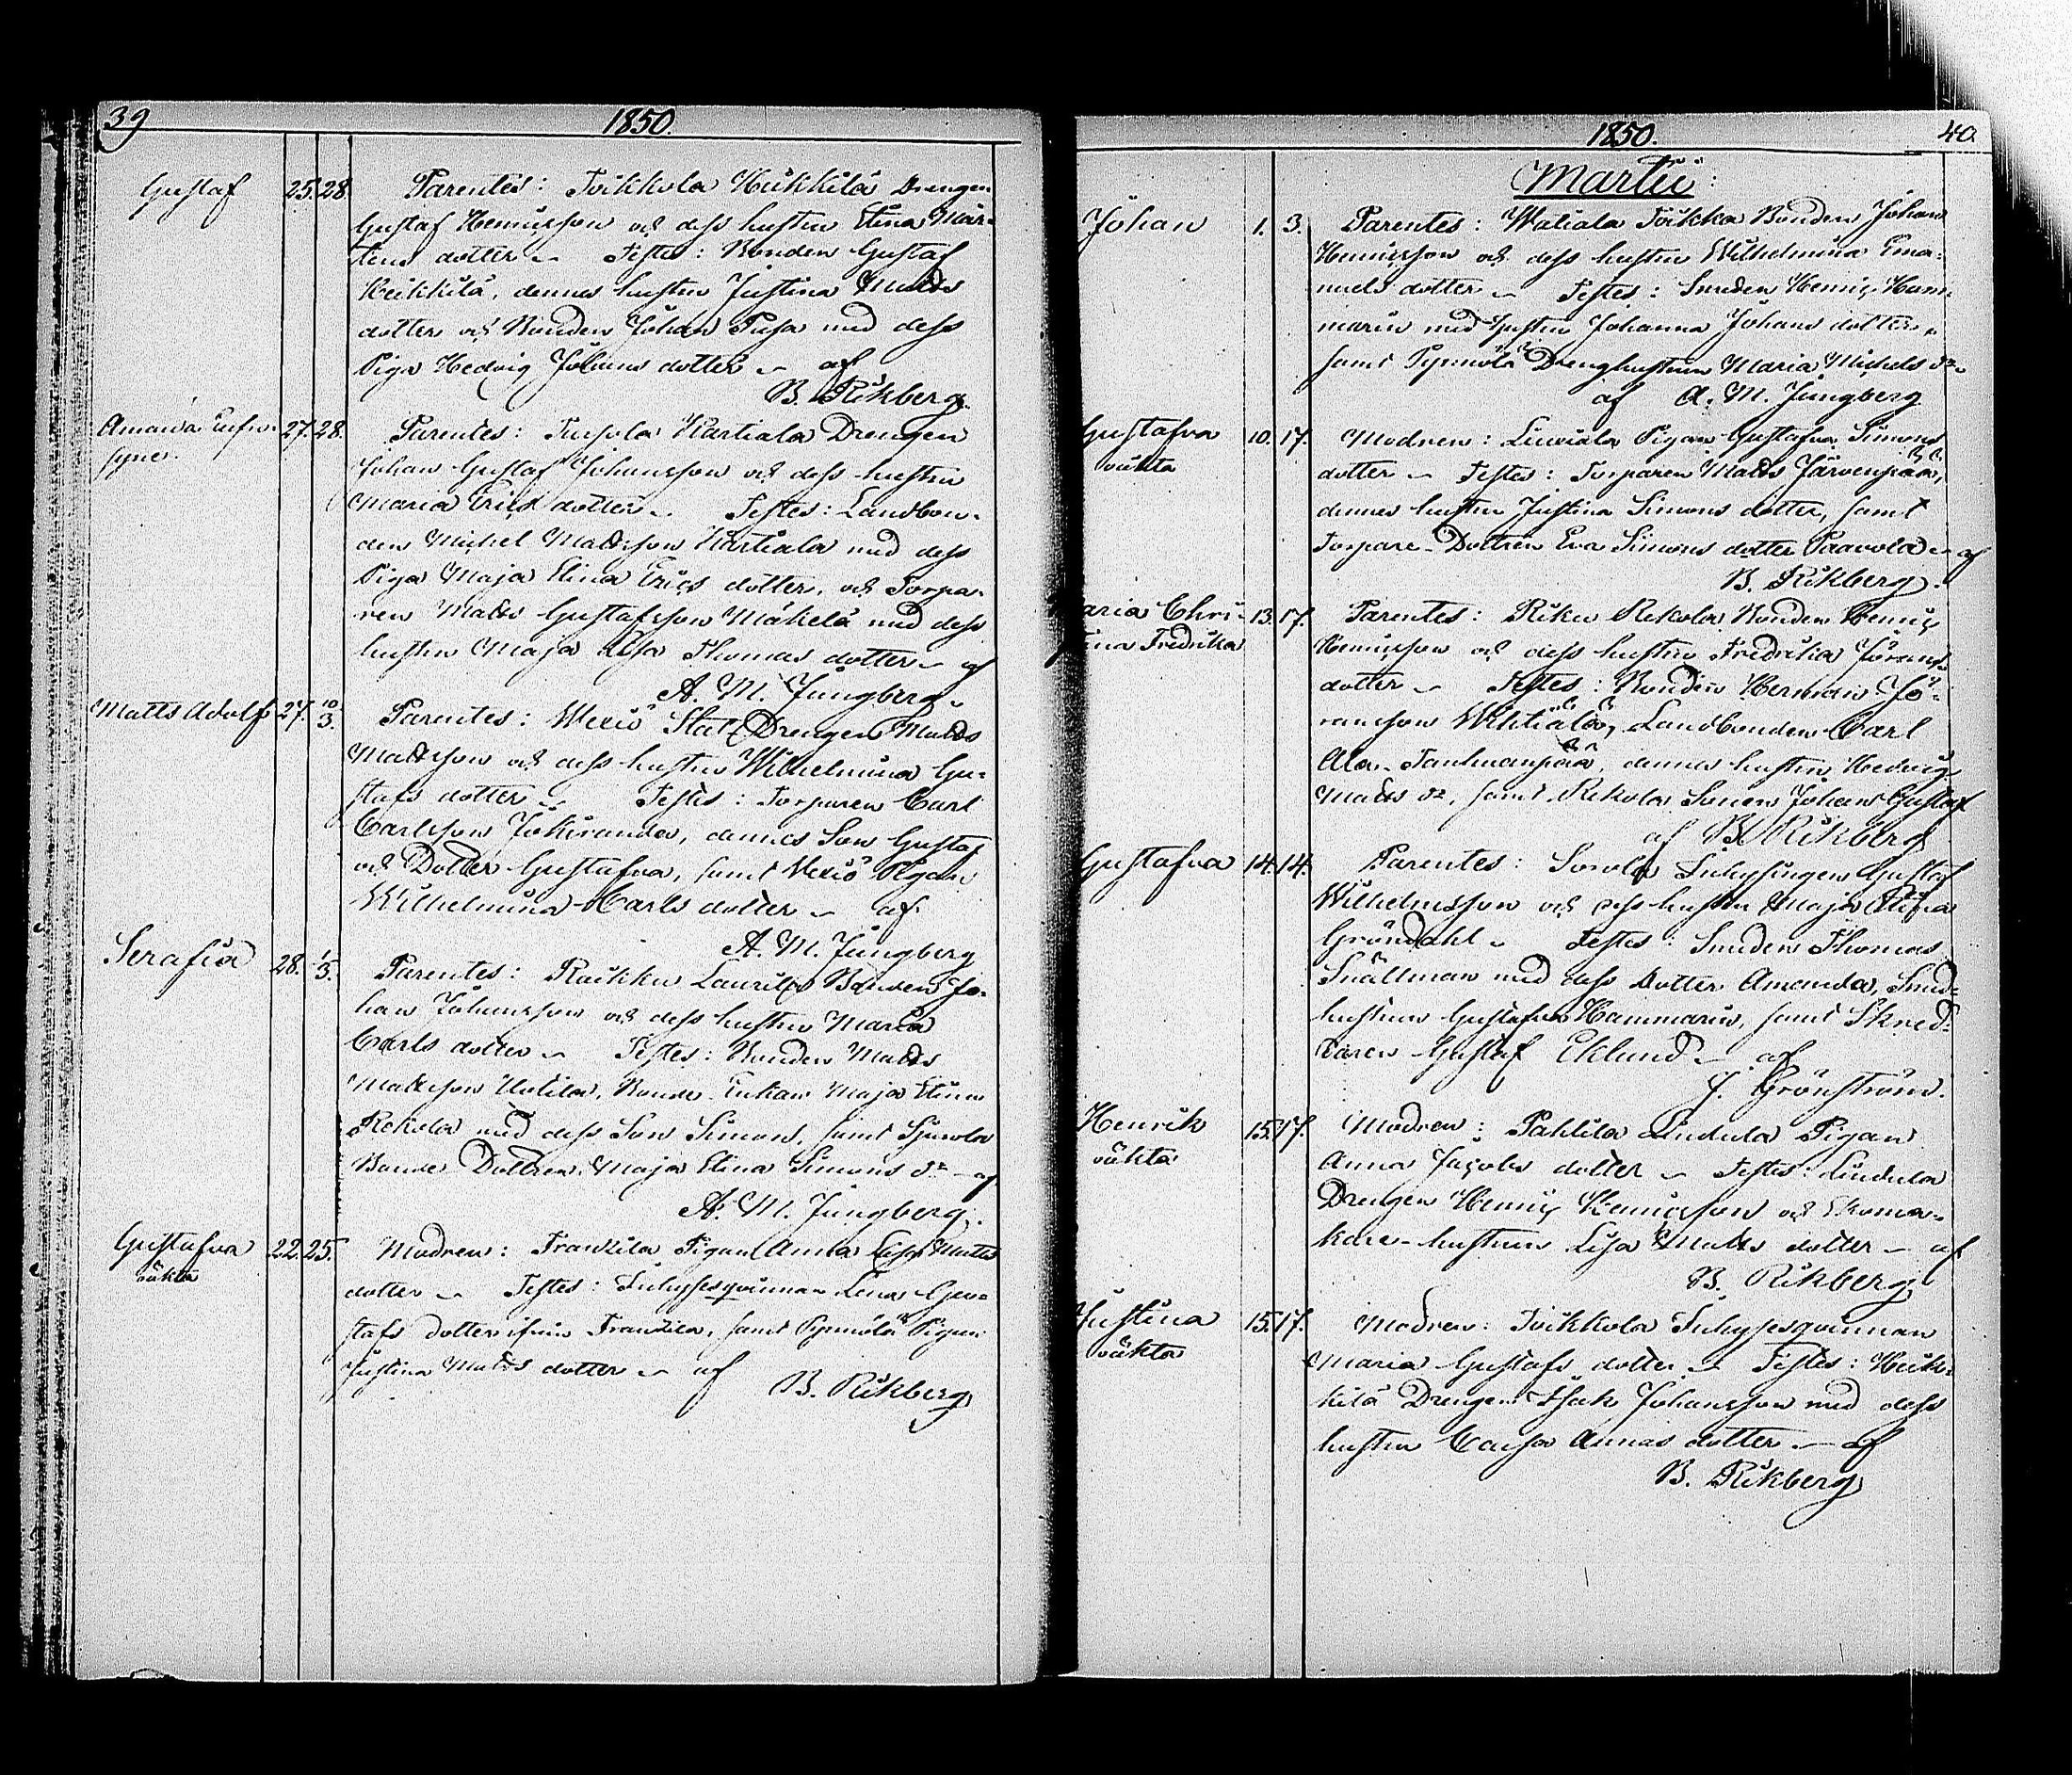 39
1850.
Gustaf 25. 28. Parentes: Toikkola Heikkilä Drengen
Gustaf Henricsson och dess hustru Elina Mår-
tens dotter — Testes: Bonden Gustaf
Heikkilä, dennes hustru Justina Matts
dotter och Bonden Johan Pusa med dess
Piga Hedvig Johans dotter — af
B. Rikberg.
Amanda Eufro- 27. 28. Parentes: Hartiala Drengen
syne. Johan Gustaf Johansson och dess hustru
Maria Erics dotter — Testes: Landbon-
den Michel Mattsson Hartiala med dess
Piga Maja Elina Erics dotter, och Torpa-
ren Matts Gustafsson Mäkelä med dess
hustru Maja Lisa Thomas dotter — af
A. M. Jungberg.
Matts Adolf 27. 10/3. Parentes: Wexiö Stat Drengen Matts
Mattsson och dess hustru Wilhelmina Gu-
stafs dotter — Testes: Torparen Carl
Carlsson Jokiranda, dennes Son Gustaf
och Dotter Gustafva, samt Wexiö Pigan
Wilhelmina Carls dotter — af
A. M. Jungberg
Serafia 28. 1/3. Parentes: Raikku Laurila Bonden Jo-
han Johansson och dess hustru Maria
Carls dotter — Testes: Bonden Matts
Mattsson Uotila, Bonde-Enkan Maja Elina
Rekola med dess Son Simon, samt Sjurola
Bonde Dottren Maja Elina Simons dr — af
A. M. Jungberg.
Gustafva 22. 25. Modren: Frantzila Pigan Anna Lisa Matts
oäkta dotter — Testes: Inhysesqvinnan Lena Gu-
stafs dotter ifrån Frantzila, samt Pynnölä Pigan
Justina Matts dotter — af
B. Rikberg
1850. 40.
Martii:
Johan 1. 3. Parentes: Waliala Toikka Bonden Johan
Henricsson och dess hustru Wilhelmina Ema-
nuels dotter — Testes: Smeden Henric Ham-
marin med hustru Johanna Johans dotter,
samt Pynnölä Drenghustrun Maria Michels dr
af A. M. Jungberg
Gustafva 10. 17. Modren: Liuviala Pigan Gustafva Simons
oäkta dotter — Testes: Torparen Matts Järvenpää,
dennes hustru Justina Simons dotter, samt
Torpare-Dottren Eva Simons dotter Paavola — af
B. Rikberg.
aria Chri- 13. 17. Parentes: Riku Rekola Bonden Henric
ina Fredrika Henricsson och dess hustru Fredrika Jörans
dotter — Testes: Bonden Herman Jö-
ransson Wihtiälä, Landbonden Carl
Ala-Tanhuanpää, dennes hustru Hedvig
Matts dr, samt Rekola Sonen Johan Gustaf
af B. Rikberg
Gustafva 14. 14. Parentes: Sorola Inhysingen Gustaf
Wilhelmsson och dess hustru Maja Stina
Gröndahl — Testes: Smeden Thomas
Snällman med dess Dotter Amanda, Smed-
hustrun Gustafva Hammarin, samt Skred-
daren Gustaf Eklund — af
J. Grönström.
Henrik 15. 17. Modren: Pahlila Lindula Pigan
oäkta Anna Jacobs dotter — Testes: Lindula
Drengen Henric Henricsson och Skoma-
kare-hustrun Lisa Matts dotter — af
B. Rikberg
Justina 15. 17. Modren: Toikkola Inhysesqvinnan
oäkta Maria Gustafs dotter — Testes: Heik-
kilä Drengen Isak Johansson med dess
hustru Caisa Annas dotter — af
B. Rikberg